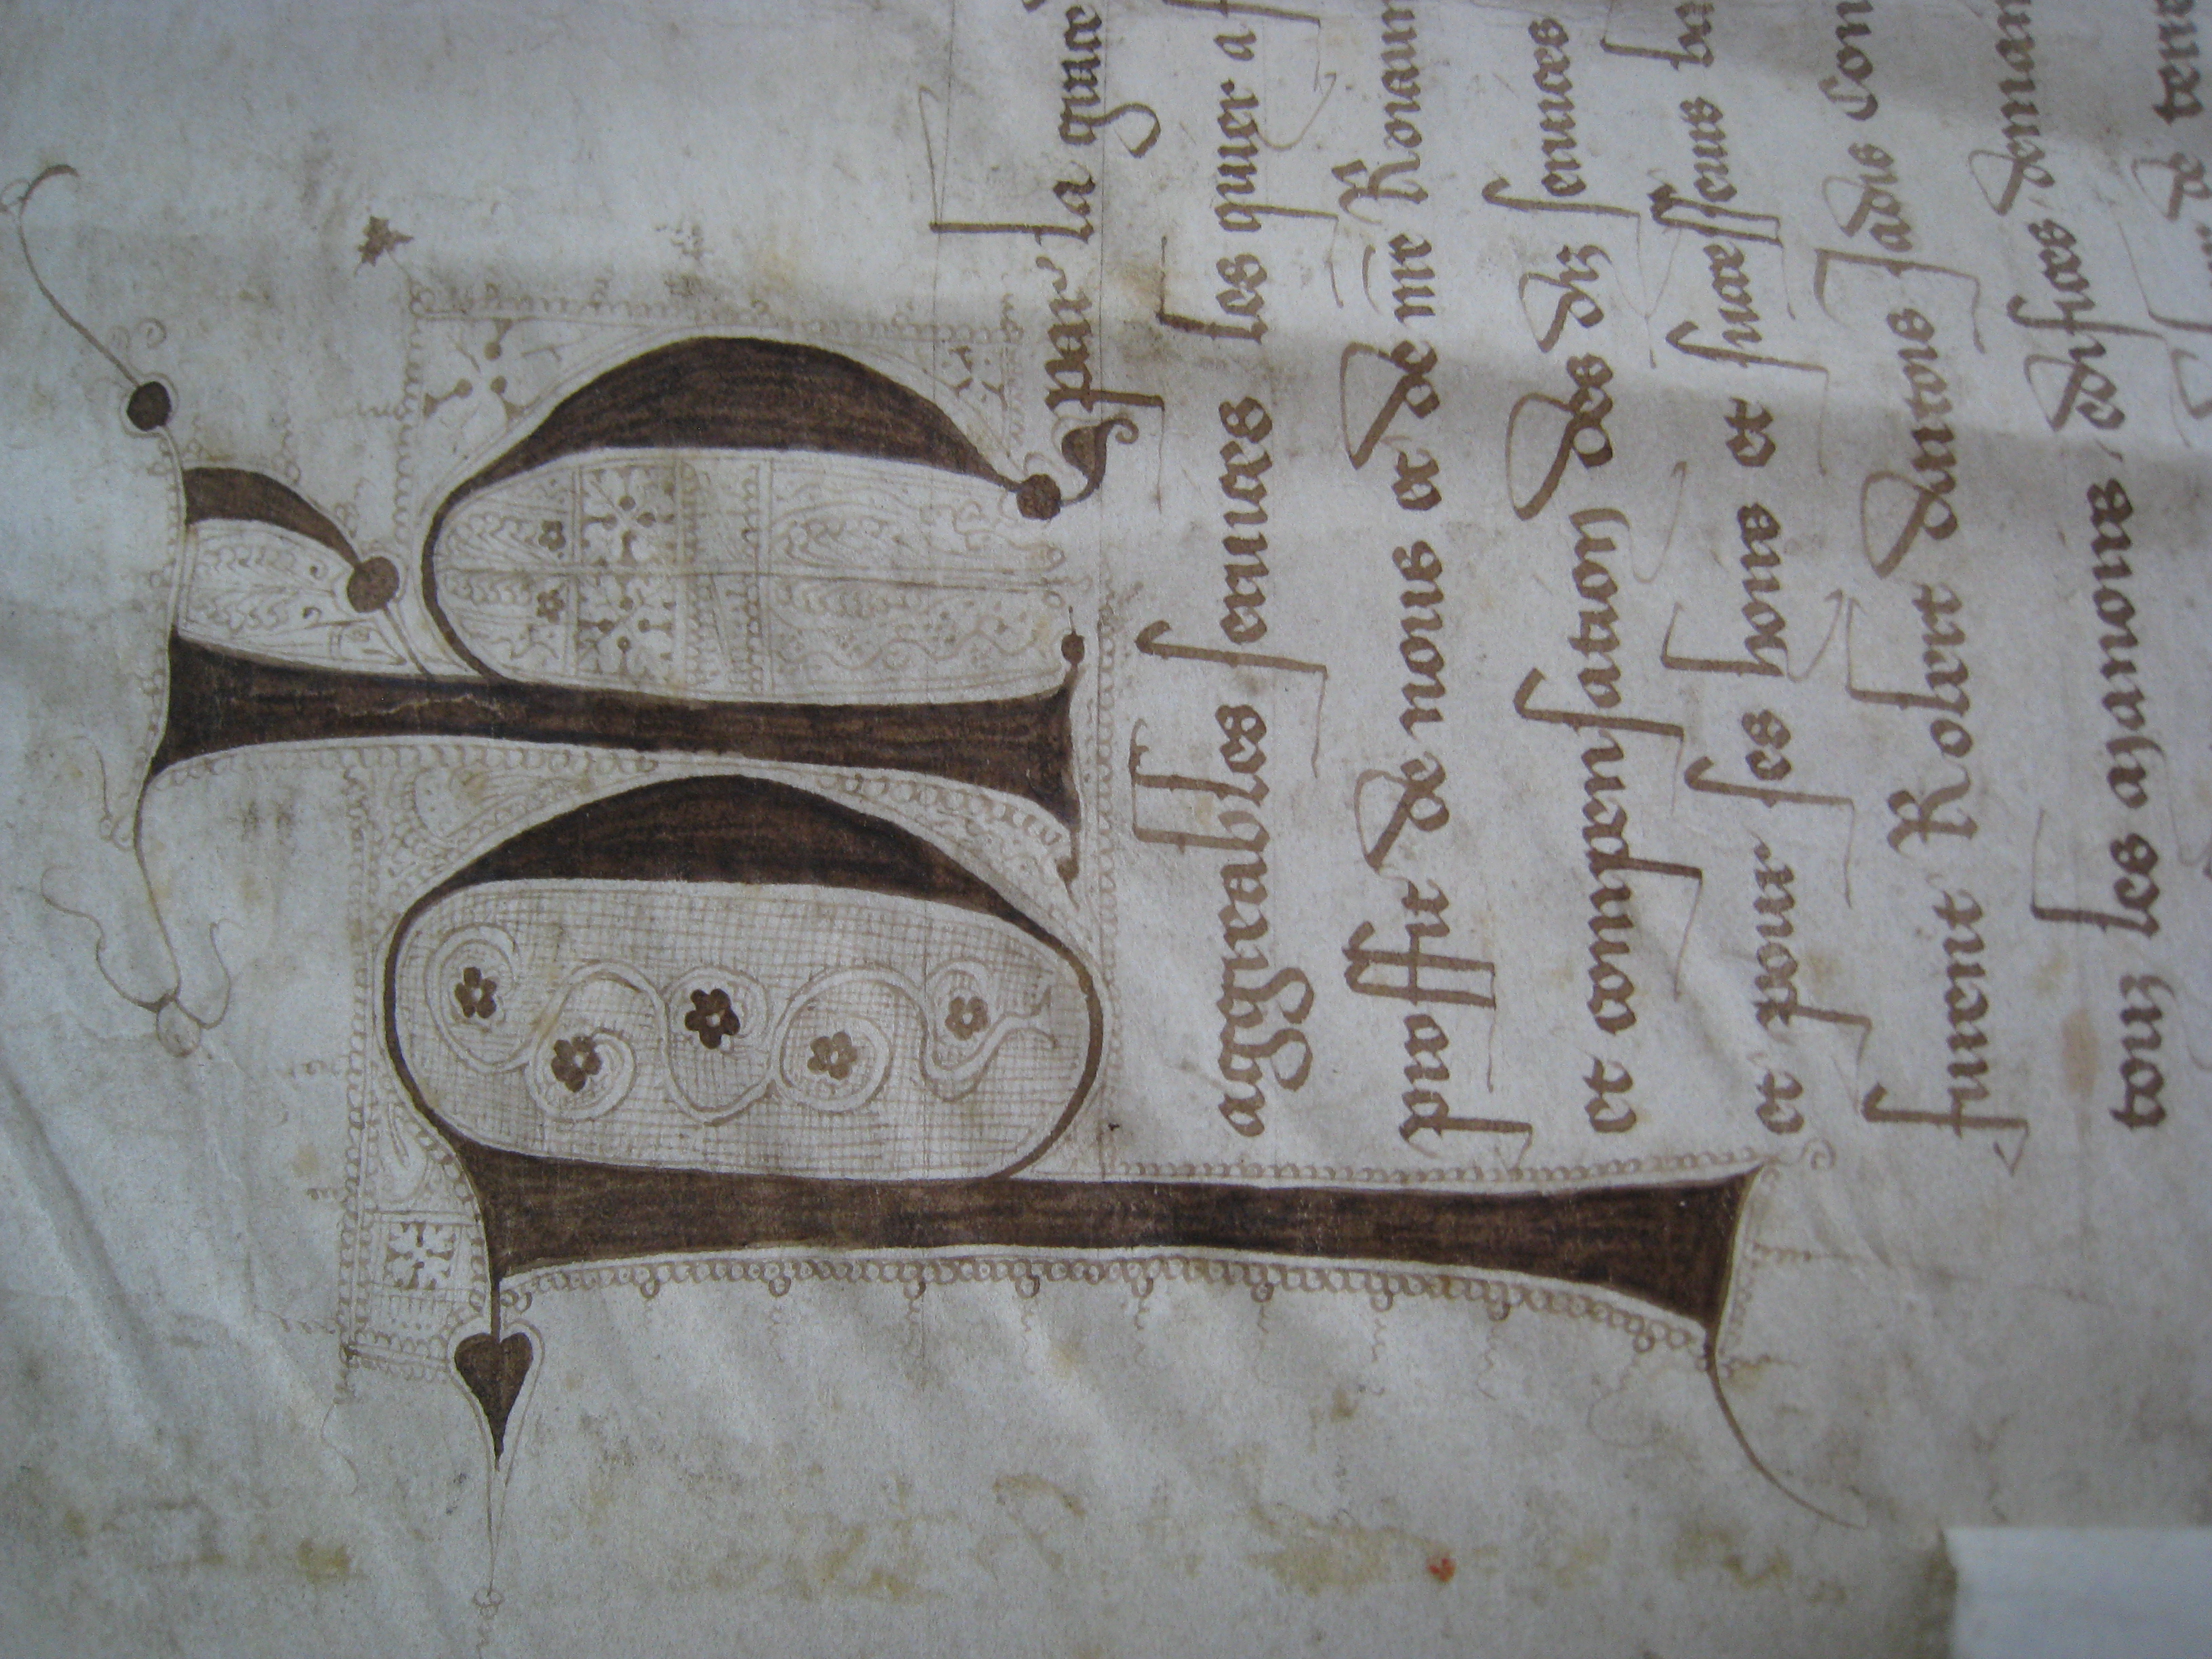 Ph par la grace
aggreables seruices les quiex a
proffit de nous et de nre Roiaum
et compensation des diz seruices
et pour ses hoirs et successeurs
furent Robert dartois jadis Con
touz les manoirs, edifices, demain